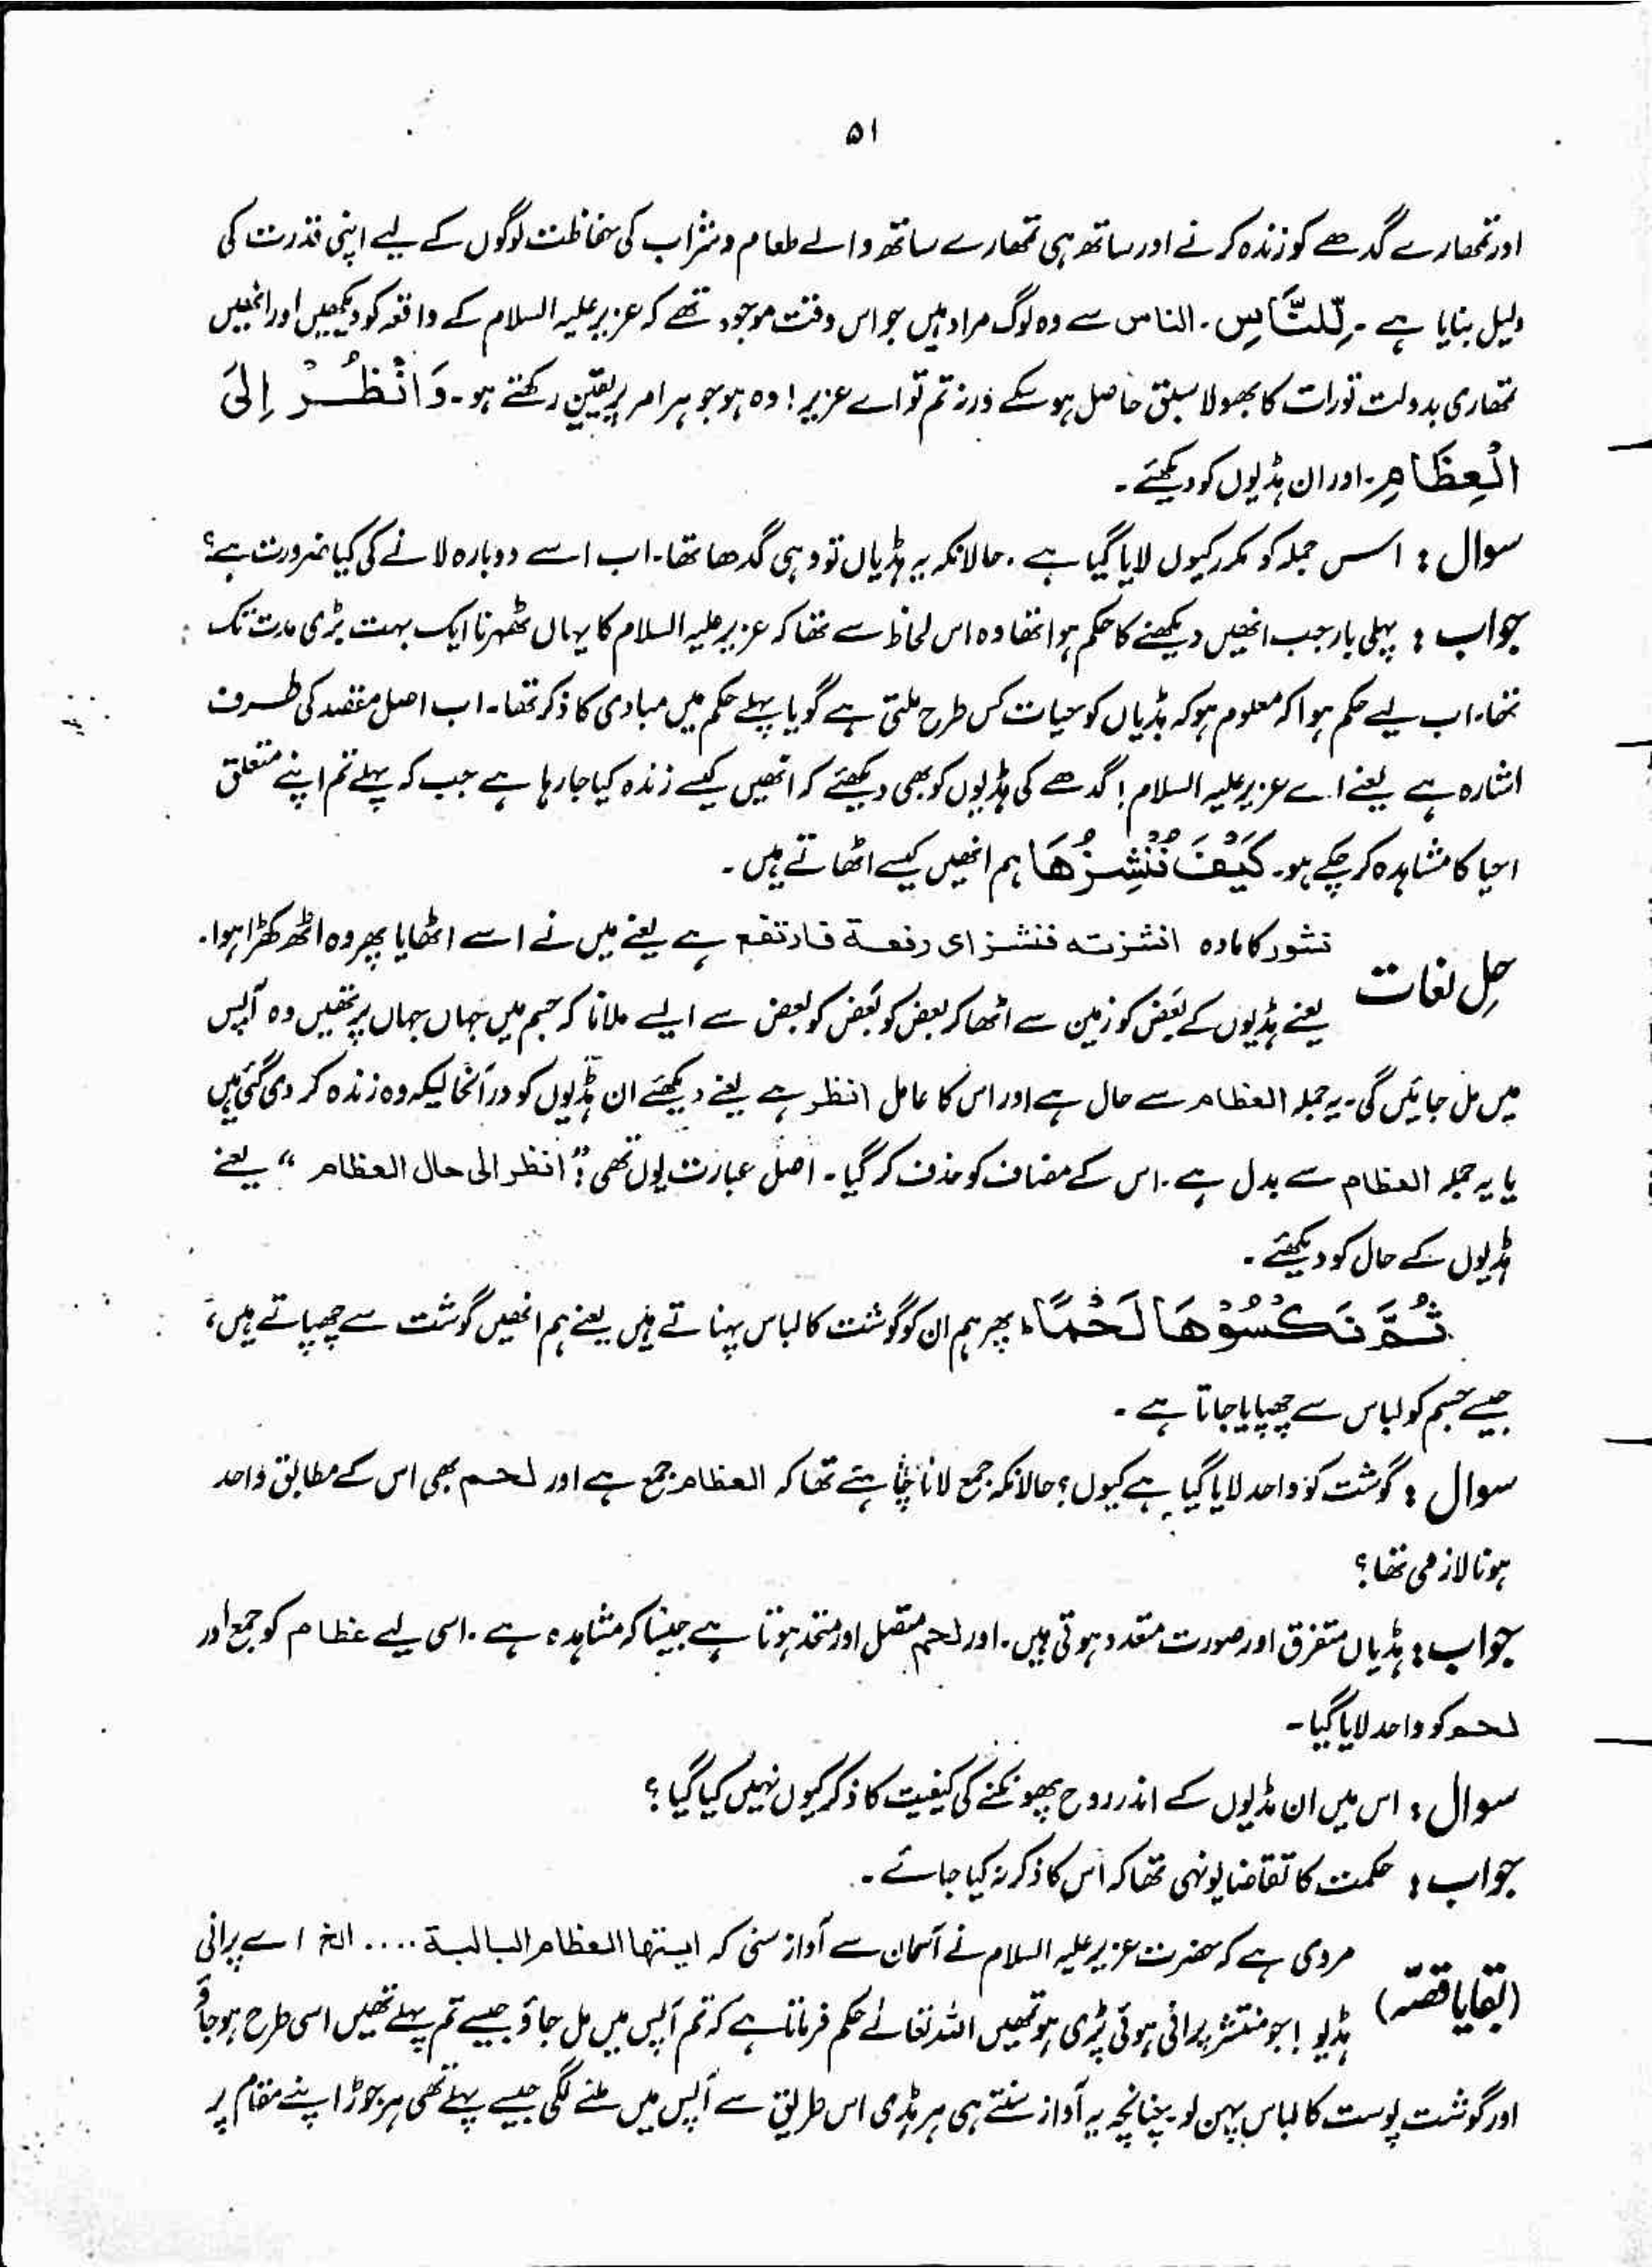 ۵۱
اور تمھارے گدھے کو زندہ کرنے اور ساتھ ہی تمھارے ساتھ والے طعام و شراب کی حفاظت لوگوں کے لیے اپنی قدرت کی
دلیل بنایا ہے ۔ لِّلنَّاسِ ۔ الناس سے وہ لوگ مراد ہیں جو اس وقت موجود تھے کہ عزیر علیہ السلام کے واقعہ کو دیکھیں اور انھیں
تمھاری بدولت تورات کا بھولا سبق حاصل ہو سکے ورنہ تم تو اے عزیر ! وہ ہو جو ہر امر پر یقین رکھتے ہو ۔ وَانْظُرْ اِلَى
الْعِظَامِ ۔ اور ان ہڈیوں کو دیکھئے ۔
سوال : اس جملہ کو مکرر کیوں لایا گیا ہے ۔ حالانکہ یہ ہڈیاں تو وہی گدھا تھا ۔ اب اسے دوبارہ لانے کی کیا ضرورت ہے ؟
جواب : پہلی بار جب انھیں دیکھنے کا حکم ہوا تھا وہ اس لحاظ سے تھا کہ عزیر علیہ السلام کا یہاں ٹھہرنا ایک بہت بڑی مدت تک
تھا ۔ اب لیے حکم ہوا کہ معلوم ہو کہ ہڈیاں کو حیات کس طرح ملتی ہے گویا پہلے حکم میں مبادی کا ذکر تھا ۔ اب اصل مقصد کی طرف
اشارہ ہے یعنے اے عزیر علیہ السلام ! گدھے کی ہڈیوں کو بھی دیکھئے کہ انھیں کیسے زندہ کیا جا رہا ہے جب کہ پہلے تم اپنے متعلق
احیا کا مشاہدہ کر چکے ہو ۔ کَیْفَ نُنْشِزُهَا ہم انھیں کیسے اٹھاتے ہیں ۔
حل لغات نشور کا مادہ انشزتہ فنشز ای رفعۃ فارتفع ہے یعنے میں نے اسے اٹھایا پھر وہ اٹھ کھڑا ہوا ۔
یعنے ہڈیوں کے بعض کو زمین سے اٹھا کر بعض کو بعض کو بعض سے ایسے ملانا کہ جسم میں جہاں جہاں پر تھیں وہ آپس
میں مل جائیں گی ۔ یہ جملہ العظام سے حال ہے اور اس کا عامل انظر ہے یعنے دیکھئے ان ہڈیوں کو درآنحالیکہ وہ زندہ کر دی گئی ہیں
یا یہ جملہ العظام سے بدل ہے ۔ اس کے مضاف کو حذف کر گیا ۔ اصل عبارت یوں تھی : " انظر الی حال العظام " یعنے
ہڈیوں کے حال کو دیکھئے ۔
ثُمَّ نَكْسُوْهَا لَحْمًا ط پھر ہم ان کو گوشت کا لباس پہناتے ہیں یعنے ہم انھیں گوشت سے چھپاتے ہیں ،
جیسے جسم کو لباس سے چھپایا جاتا ہے ۔
سوال : گوشت کو واحد لایا گیا ہے کیوں ؟ حالانکہ جمع لانا چاہئے تھا کہ العظام جمع ہے اور لحم بھی اس کے مطابق واحد
ہونا لازمی تھا ؟
جواب : ہڈیاں متفرق اور صورت متعدد ہوتی ہیں ۔ اور لحم متصل اور متحد ہوتا ہے جیسا کہ مشاہدہ ہے ۔ اسی لیے عظام کو جمع اور
لحم کو واحد لایا گیا ۔
سوال : اس میں ان ہڈیوں کے اندر روح پھونکنے کی کیفیت کا ذکر کیوں نہیں کیا گیا ؟
جواب : حکمت کا تقاضا یونہی تھا کہ اس کا ذکر نہ کیا جائے ۔
(بقایا قصہ) مروی ہے کہ حضرت عزیر علیہ السلام نے آسمان سے آواز سنی کہ ایتها العظام البالیۃ .... الخ اے پرانی
ہڈیو ! جو منتشر پرائی ہوئی پڑی ہو تمھیں اللہ تعالےٰ حکم فرماتا ہے کہ تم آپس میں مل جاؤ جیسے تم پہلے تھیں اسی طرح ہو جاؤ
اور گوشت پوست کا لباس پہن لو ۔ چنانچہ یہ آواز سنتے ہی ہر ہڈی اس طریق سے آپس میں ملنے لگی جیسے پہلے تھی ہر جوڑ اپنے مقام پر